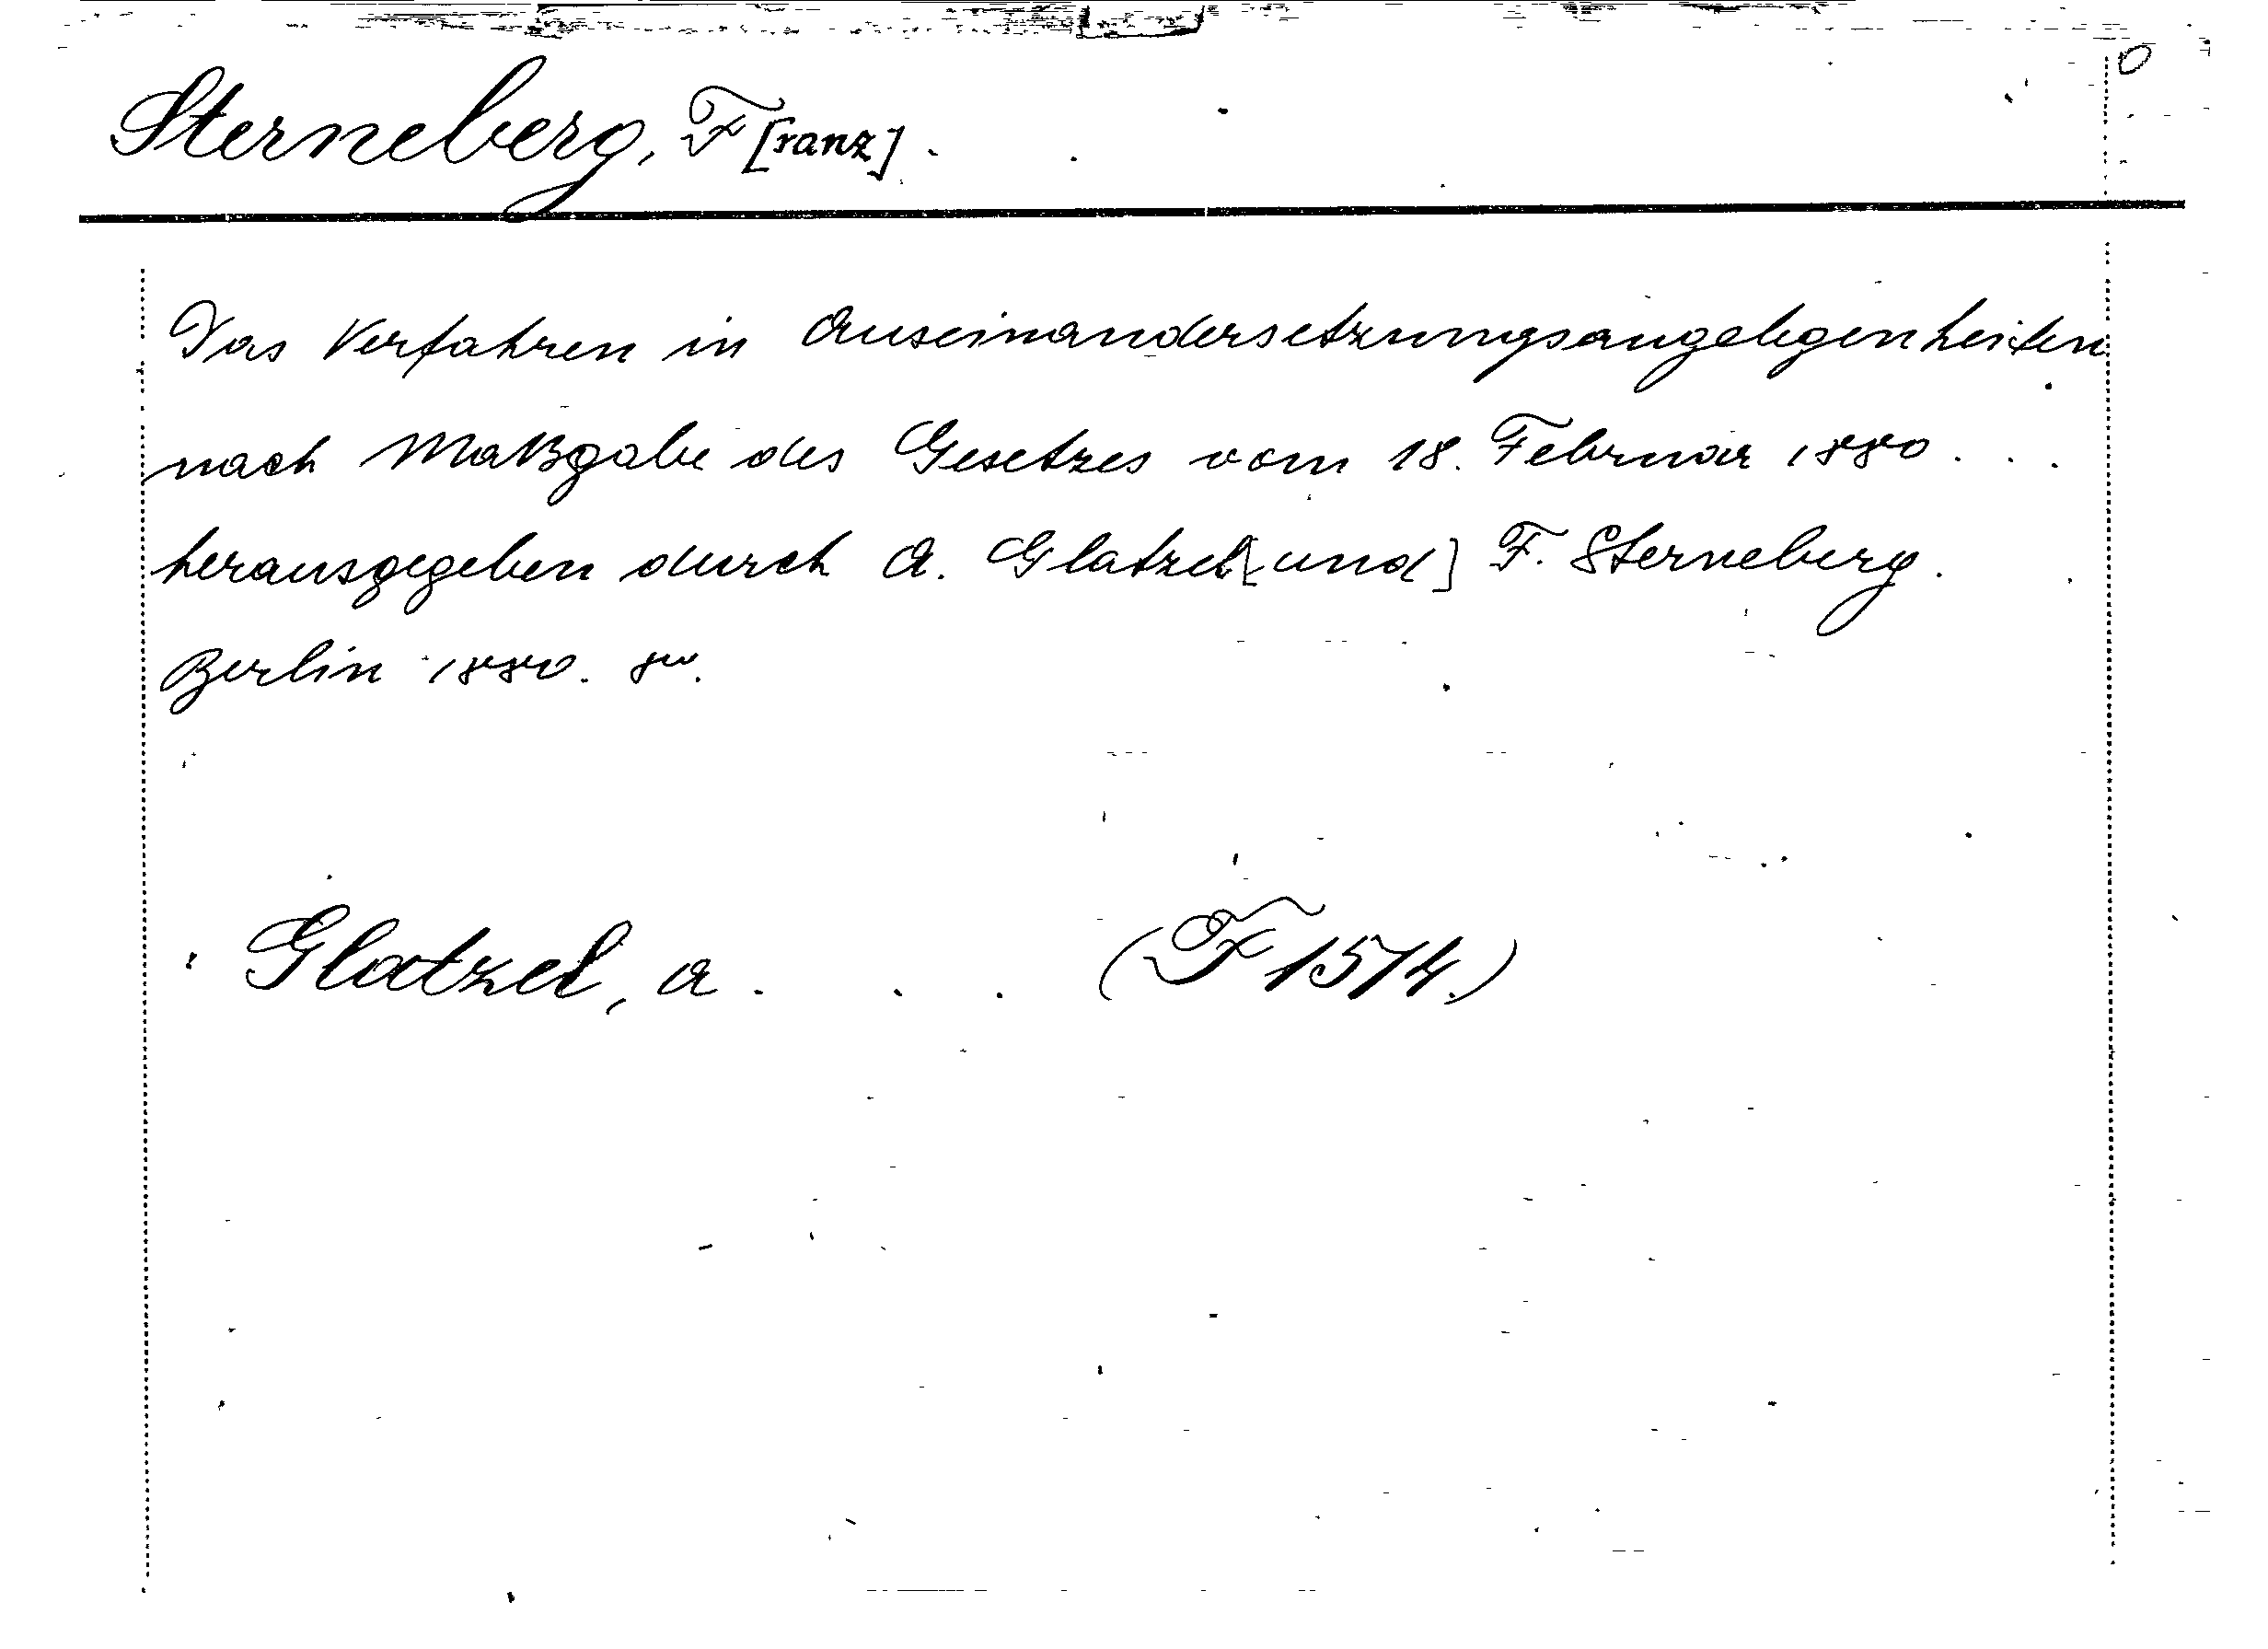 Sterneberg, F[ranz].
Das Verfahren in Auseinandersetzungsangelegenheiten
nach Maßgabe des Gesetzes vom 18. Februar 1880 . . .
herausgegeben durch A. Glatzel [und] F. Sterneberg.
Berlin 1880. 8vo.
Glatzel, A. (F 1574.)